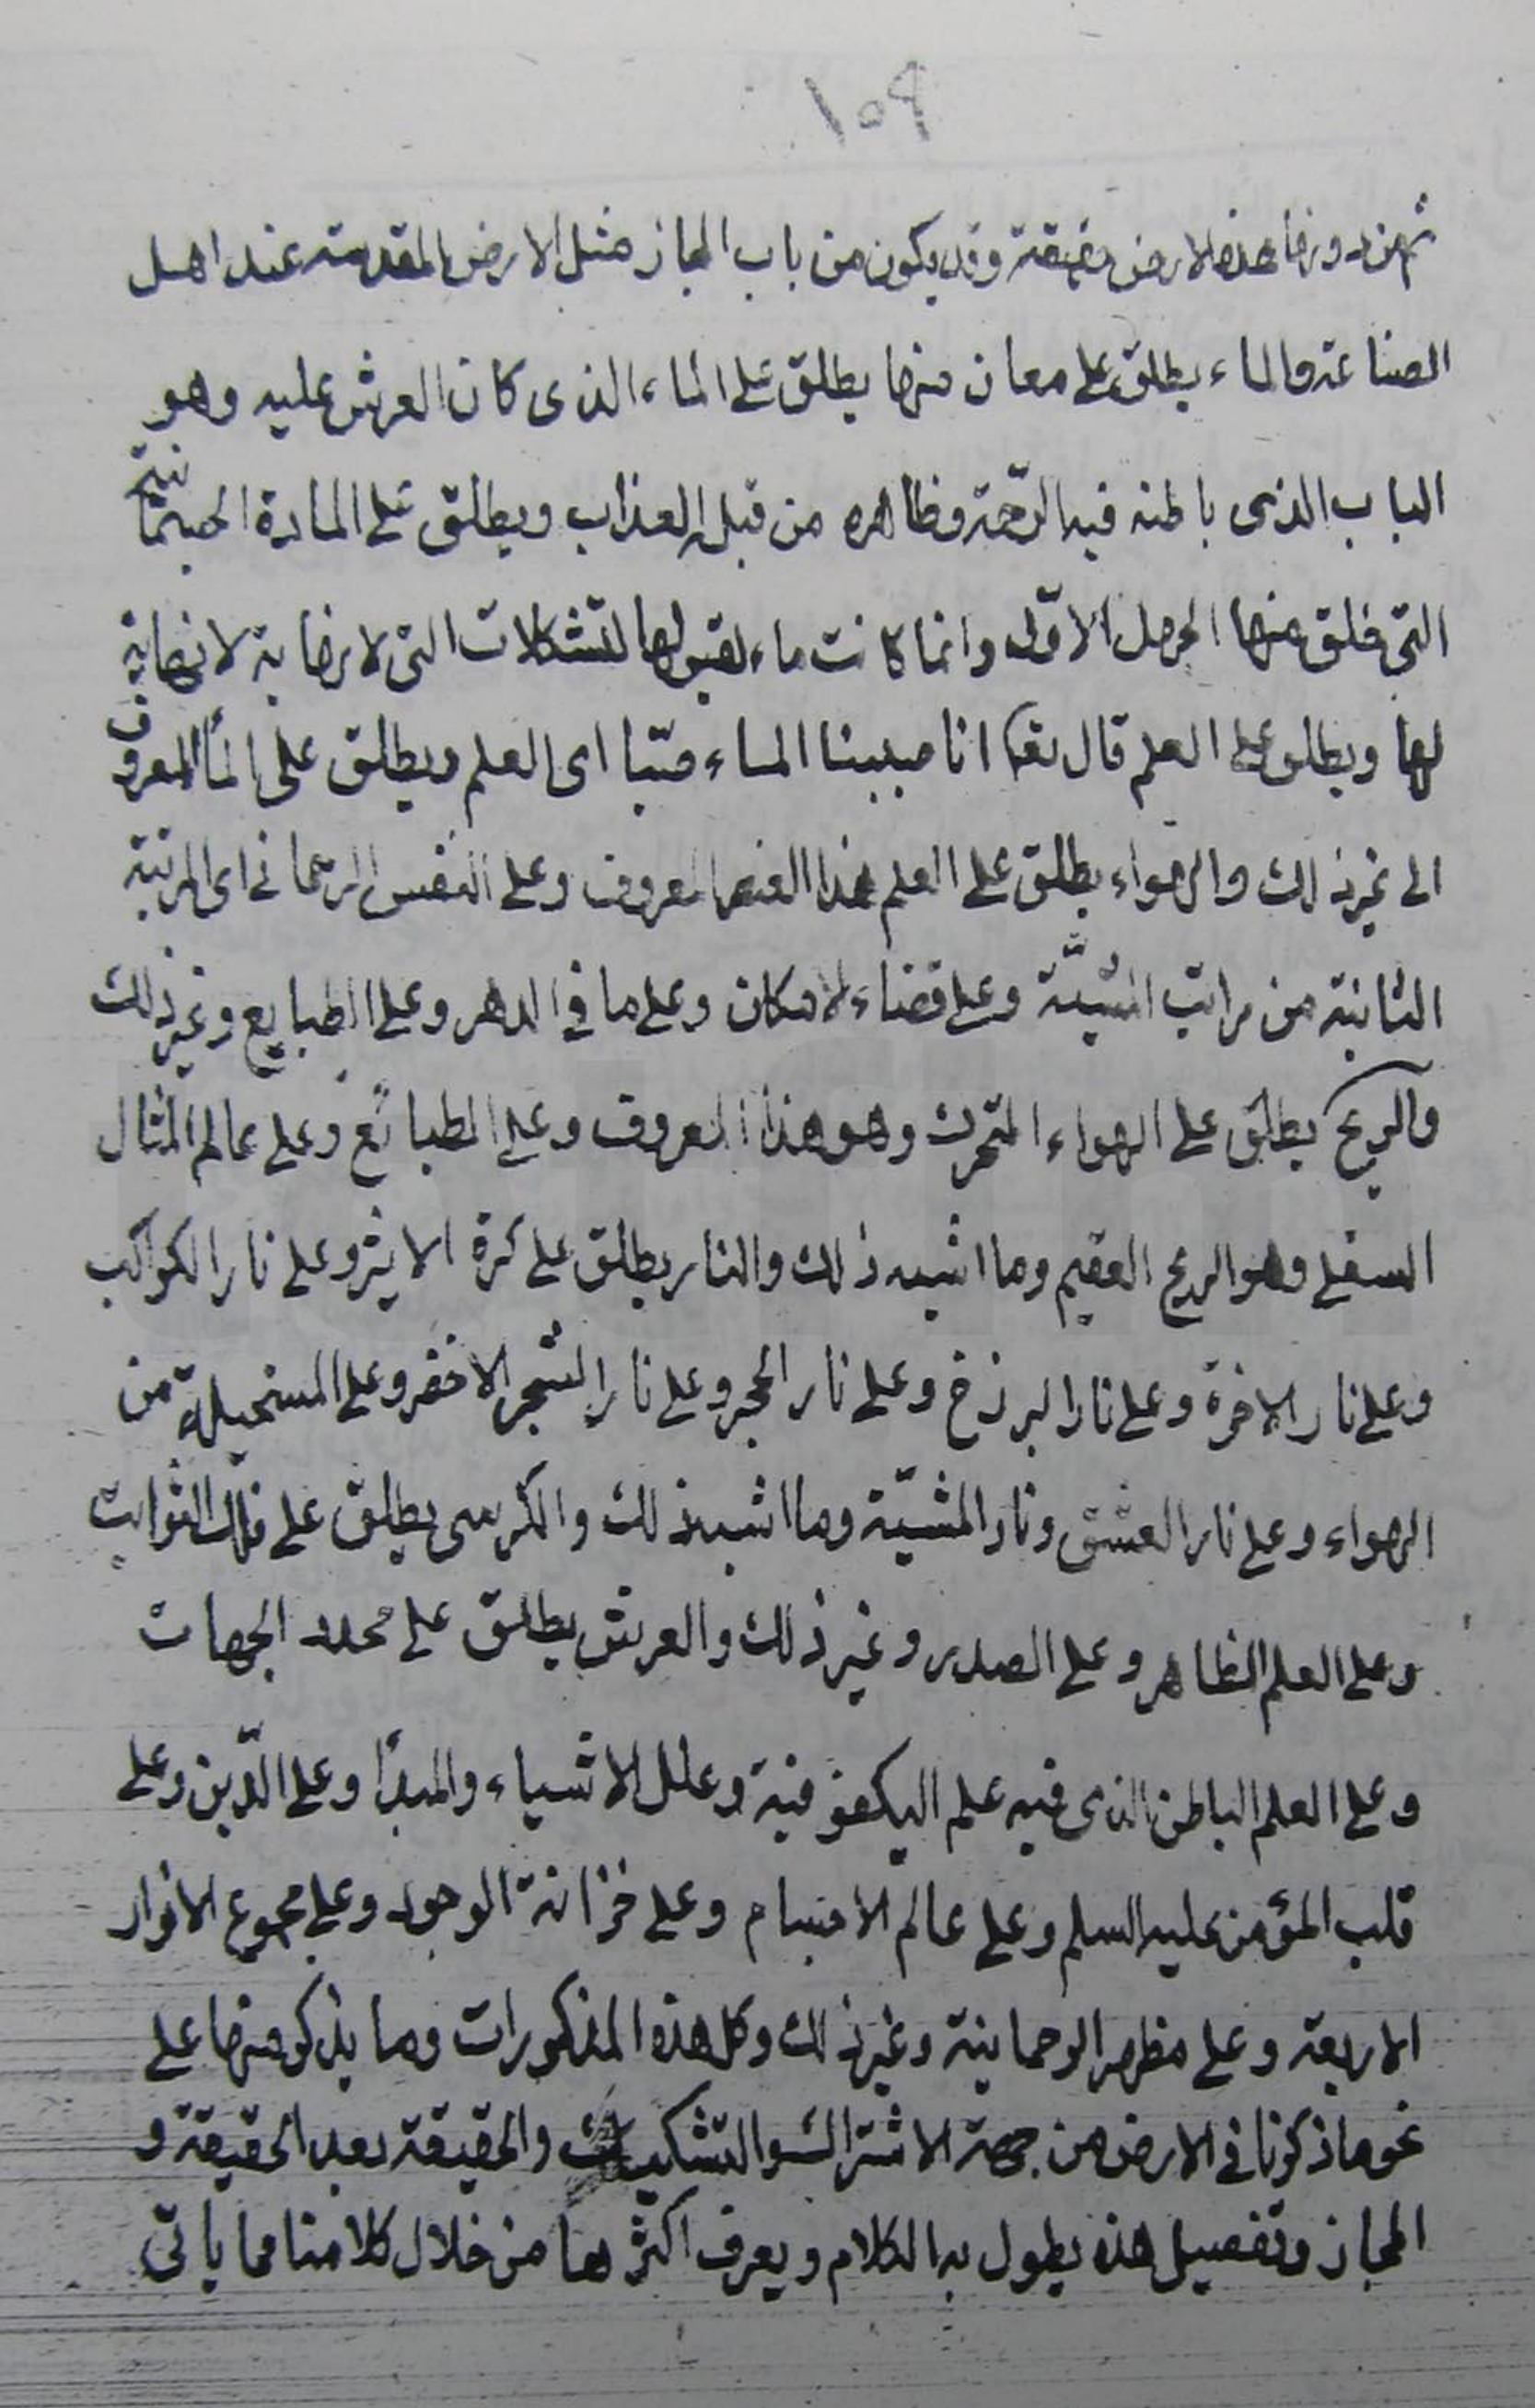 ١٥٩
ثم من دونها هذه الارض حقيقة وقد يكون من باب المجاز مثل الارض المقدسة عند اهل
الصناعة والماء يطلق على معان منها يطلق على الماء الذى كان العرش عليه وهو
الباب الذى باطنه فيه الرّحمة وظاهره من قبله العذاب ويطلق على المادة الجسمانية
التى خلق منها الاوّل وانما كانت ماء لقبولها للتشكلات التى لا نهاية لا نهاية
لها ويطلق على العلم قال تعا انا صببنا الماء صبّا اى العلم ويطلق على المأ المعروف
الى غير ذلك والهواء يطلق على العلم هذا العنصر المعروف وعلى النفس الرحمانى اى المرتبة
الثانية من مراتب المشيّة وعلى فضاء الامكان وعلى ما فى الدهر وعلى الطبايع وغير ذلك
والريح يطلق على الهواء المتحرك وهو هذا المعروف وعلى الطبائع وعلى عالم المثال
السفلى وهو الريح العقيم وما اشبه ذلك والنار يطلق على كرة الاثير وعلى نار الكواكب
وعلى نار الاخرة وعلى نار البرزخ وعلى نار الحجر وعلى نار الشجر الاخضر وعلى المستحيلة من
الهواء وعلى نار العشق ونار المشيّة وما اشبه ذلك والكرسى يطلق على فلك الثوابت
وعلى العلم الظاهر وعلى الصدر وغير ذلك والعرش يطلق على محدد الجهات
وعلى العلم الباطن الذى فيه علم الكيفوفية وعلل الاشياء والمبدأ وعلى الدّين وعلى
قلب المؤمن عليه السلم وعلى عالم الاجسام وعلى خزانة الوجود وعلى مجموع الانوار
الاربعة وعلى مظهر الرحمانية وغير ذلك وكل هذه المذكورات وما يذكر منها على
نحو ما ذكرنا فى الارض من جهة الاشتراك والتشكيك والحقيقة بعد الحقيقة و
المجاز وتفصيل هذه يطول به الكلام ويعرف اكثرها من خلال كلامنا مما ياتى